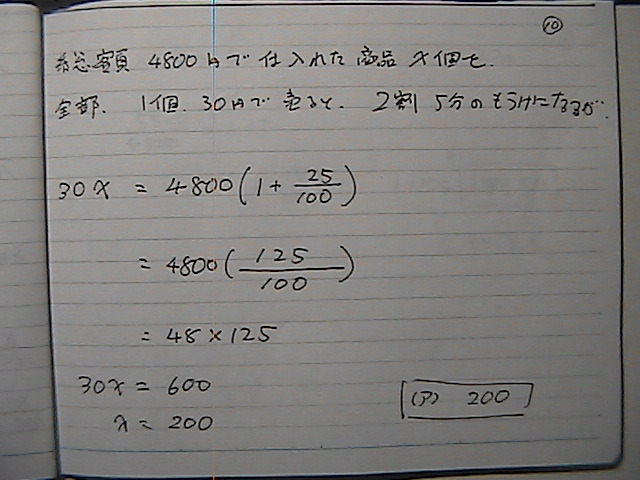 ⑩
総額 4800円で 仕入れた 商品 x個を.
全部. 1個. 30円で 売ると. 2割 5分の もうけになるが.
30x = 4800(1 + 25/100)
= 4800(125/100)
= 48 × 125
30x = 600
x = 200
(ア) 200